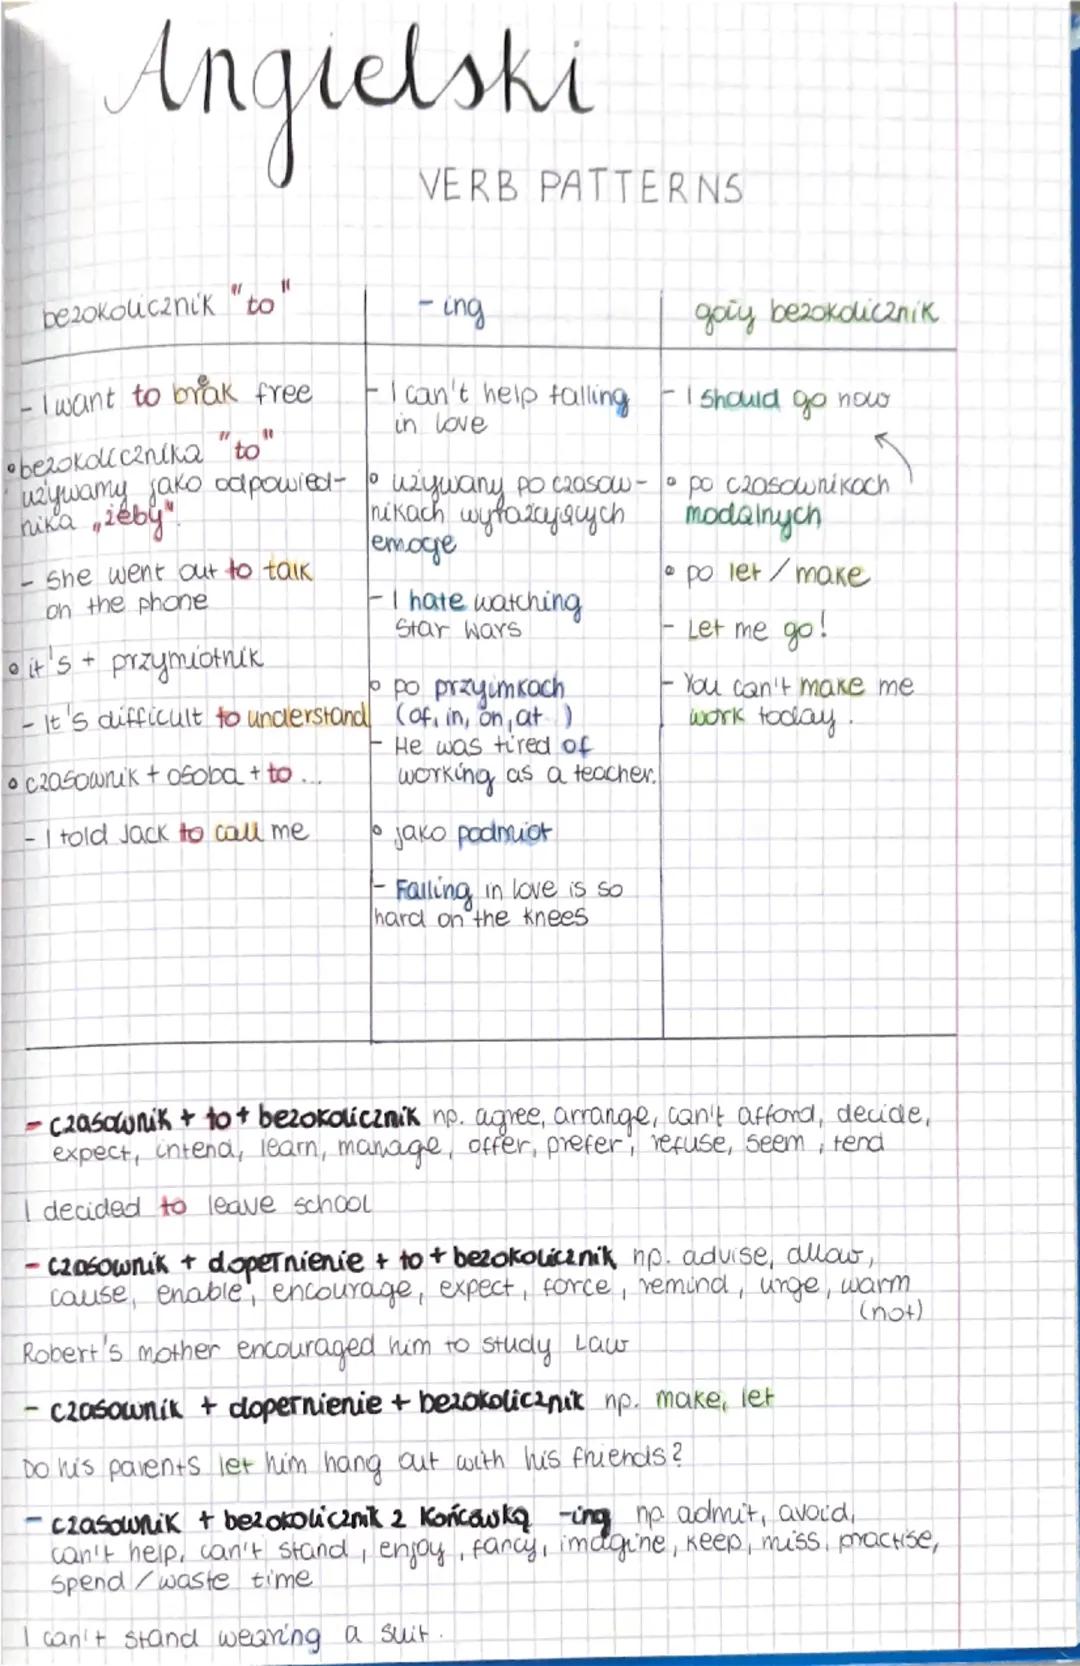 Angielski
VERB PATTERNS
bezokolicznik "to"
- I want to break free
• bezokolicznika "to"
używamy jako odpowied-
nika „żeby"
- She went out to talk
on the phone
• it's + przymiotnik
- It's difficult to understand
• czasownik + osoba + to ...
- I told Jack to call me
- ing
- I can't help falling
in love
• używany po czasow-
nikach wyrażających
emocje
- I hate watching
Star Wars
• po przyimkach
(of, in, on, at..)
- He was tired of
working as a teacher.
• jako podmiot
- Falling in love is so
hard on the knees
goły bezokolicznik
- I should go now
• po czasownikach
modalnych
• po let / make
- Let me go!
- You can't make me
work today.
- czasownik + to + bezokolicznik np. agree, arrange, can't afford, decide,
expect, intend, learn, manage, offer, prefer, refuse, seem, tend
I decided to leave school
- czasownik + dopełnienie + to + bezokolicznik np. advise, allow,
cause, enable, encourage, expect, force, remind, urge, warm
(not)
Robert's mother encouraged him to study Law
- czasownik + dopełnienie + bezokolicznik np. make, let
Do his parents let him hang out with his friends?
- czasownik + bezokolicznik z końcówką -ing np. admit, avoid,
can't help, can't stand, enjoy, fancy, imagine, keep, miss, practise,
spend / waste time
I can't stand wearing a suit.